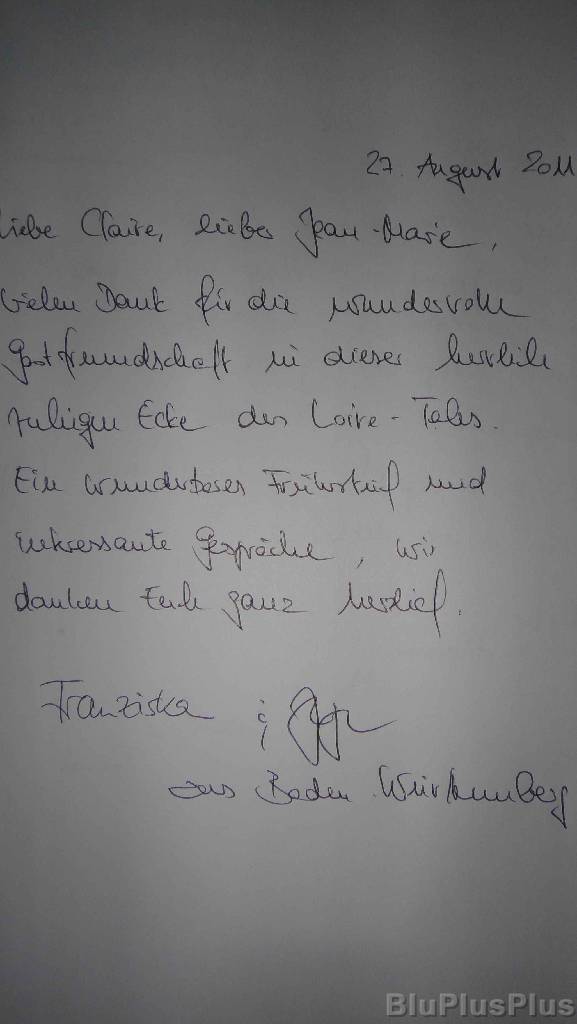 27. August 2011
Liebe Claire, lieber Jean-Marie,
vielen Dank für die wundervolle
Gastfreundschaft in dieser herrlich
ruhigen Ecke des Loire-Tales.
Ein wunderbares Frühstück und
interessante Gespräche, wir
danken Euch ganz herzlich.
Franziska &
aus Baden Württemberg
BluPlusPlus